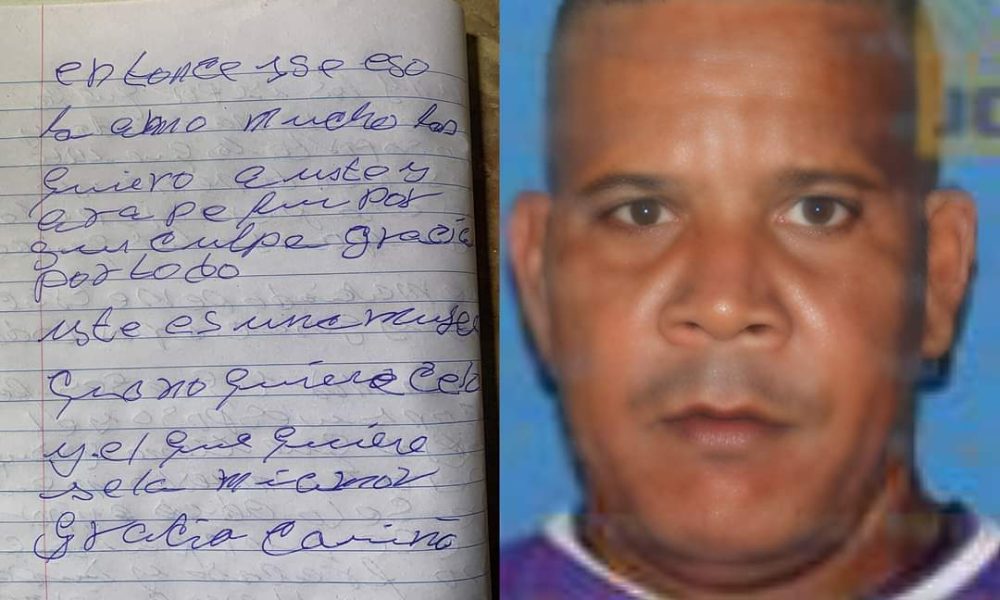 entonce yse eso
la amo mucho las
quiero a uste y
por
culpa gracia
por todo
uste es una muje
que no quiere
y el que quiere
mi amor
gracia Cariño